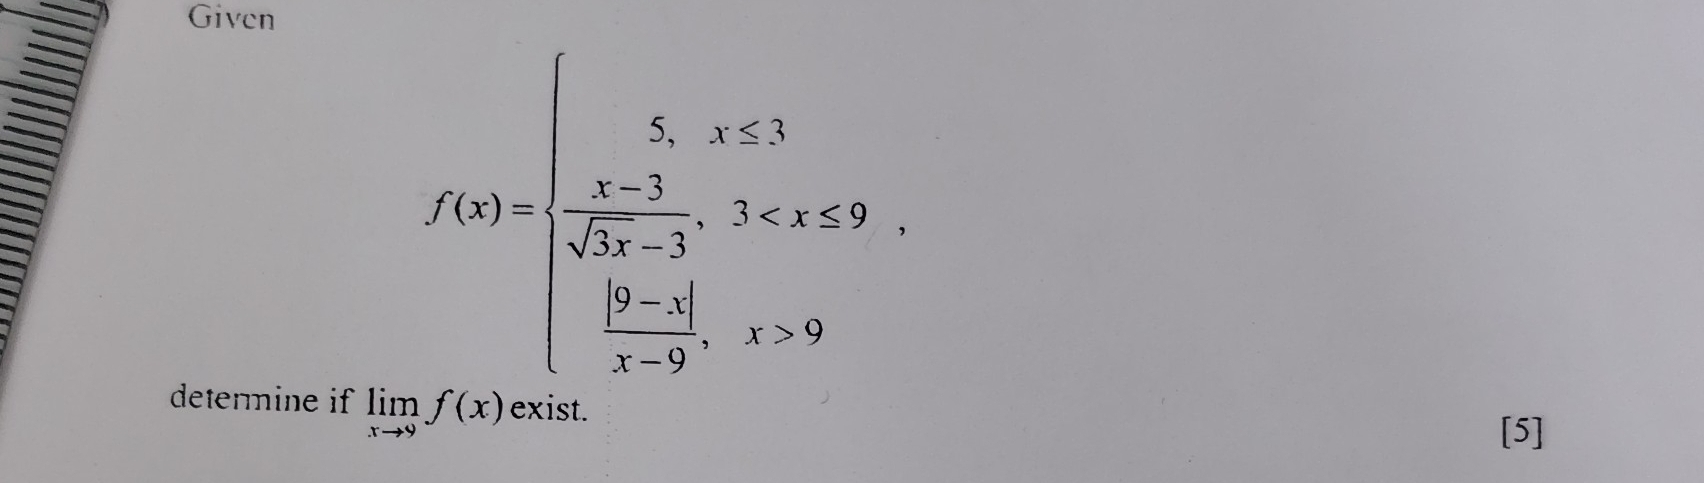 Given
5, x ≤ 3
f(x) = { (x − 3)/(√3x − 3), 3 < x ≤ 9 ,
|9 − x|/(x − 9), x > 9
determine if lim x→9 f(x) exist.
[5]